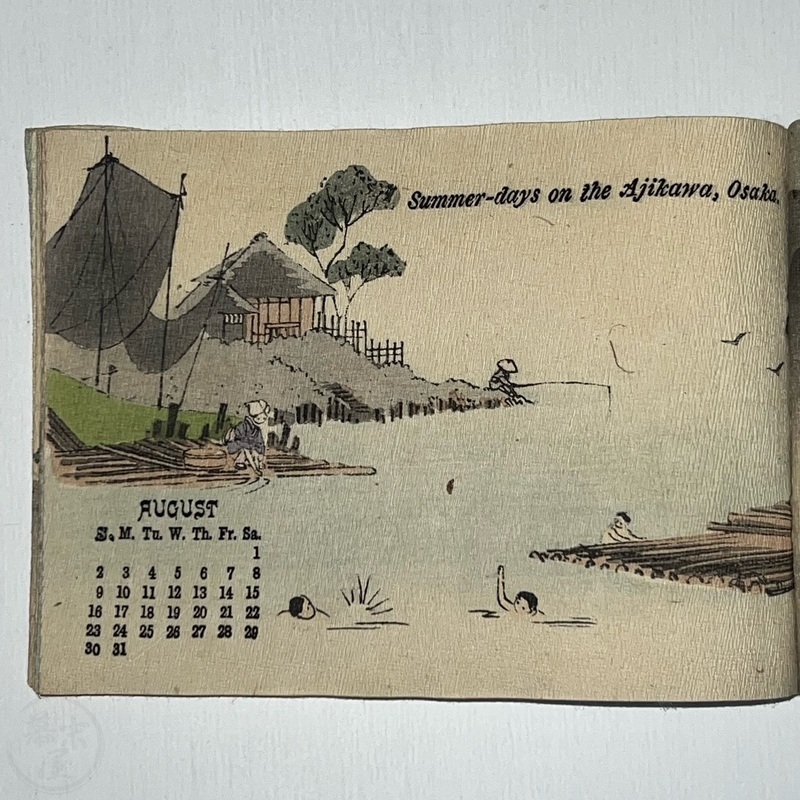 Summer-days on the Ajikawa, Osaka.
AUGUST
S. M. Tu. W. Th. Fr. Sa.
1
2 3 4 5 6 7 8
9 10 11 12 13 14 15
16 17 18 19 20 21 22
23 24 25 26 27 28 29
30 31